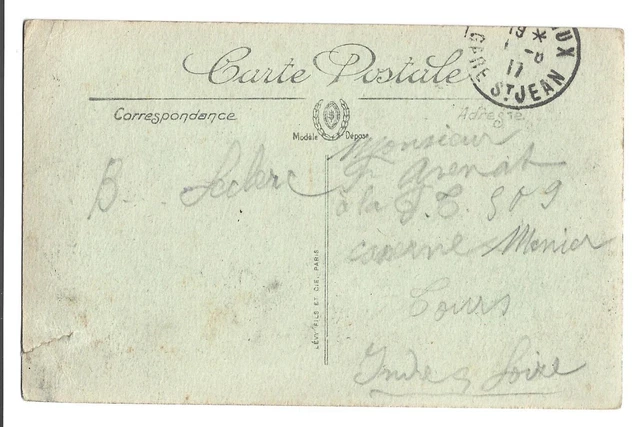 19 *
UX
GARE ST JEAN
17
Carte Postale
Correspondance
Adresse
Modèle Déposé
Monsieur
B. Leclerc
à la S. C. 509
caserne Menier
Tours
Indre & Loire
LÉVY FILS ET CIE, PARIS